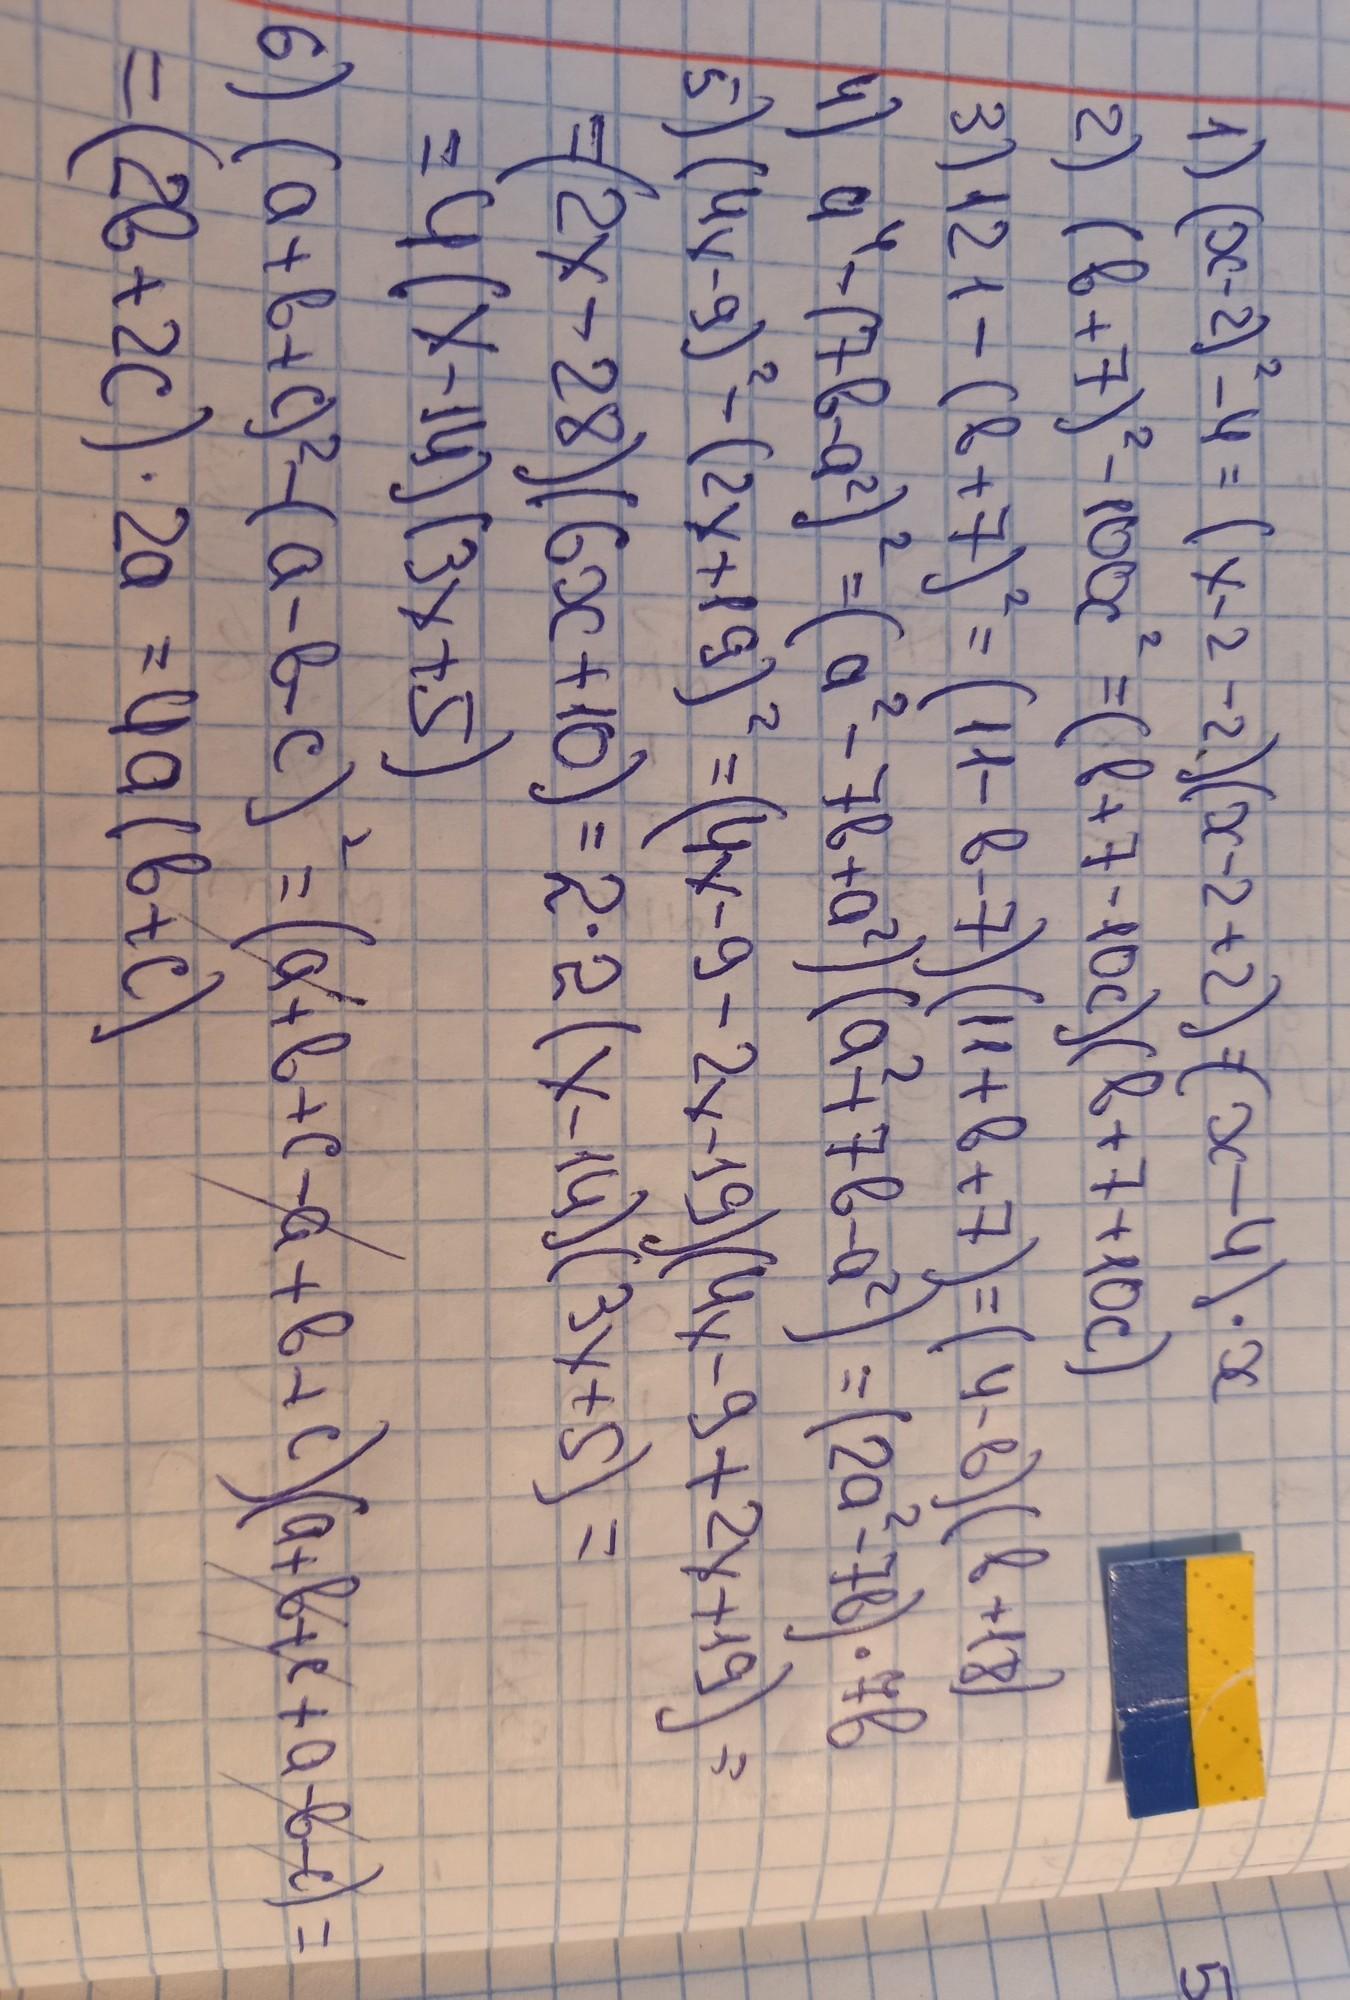 1) (x-2)² - 4 = (x-2-2)(x-2+2) = (x-4)·x
2) (b+7)² - 100c² = (b+7-10c)(b+7+10c)
3) 121 - (b+7)² = (11-b-7)(11+b+7) = (4-b)(b+18)
4) a⁴ - (7b-a²)² = (a²-7b+a²)(a²+7b-a²) = (2a²-7b)·7b
5) (4x-9)² - (2x+19)² = (4x-9-2x-19)(4x-9+2x+19) =
= (2x-28)(6x+10) = 2·2(x-14)(3x+5) =
= 4(x-14)(3x+5)
6) (a+b+c)² - (a-b-c)² = (a+b+c-a+b+c)(a+b+c+a-b-c) =
= (2b+2c)·2a = 4a(b+c)
5